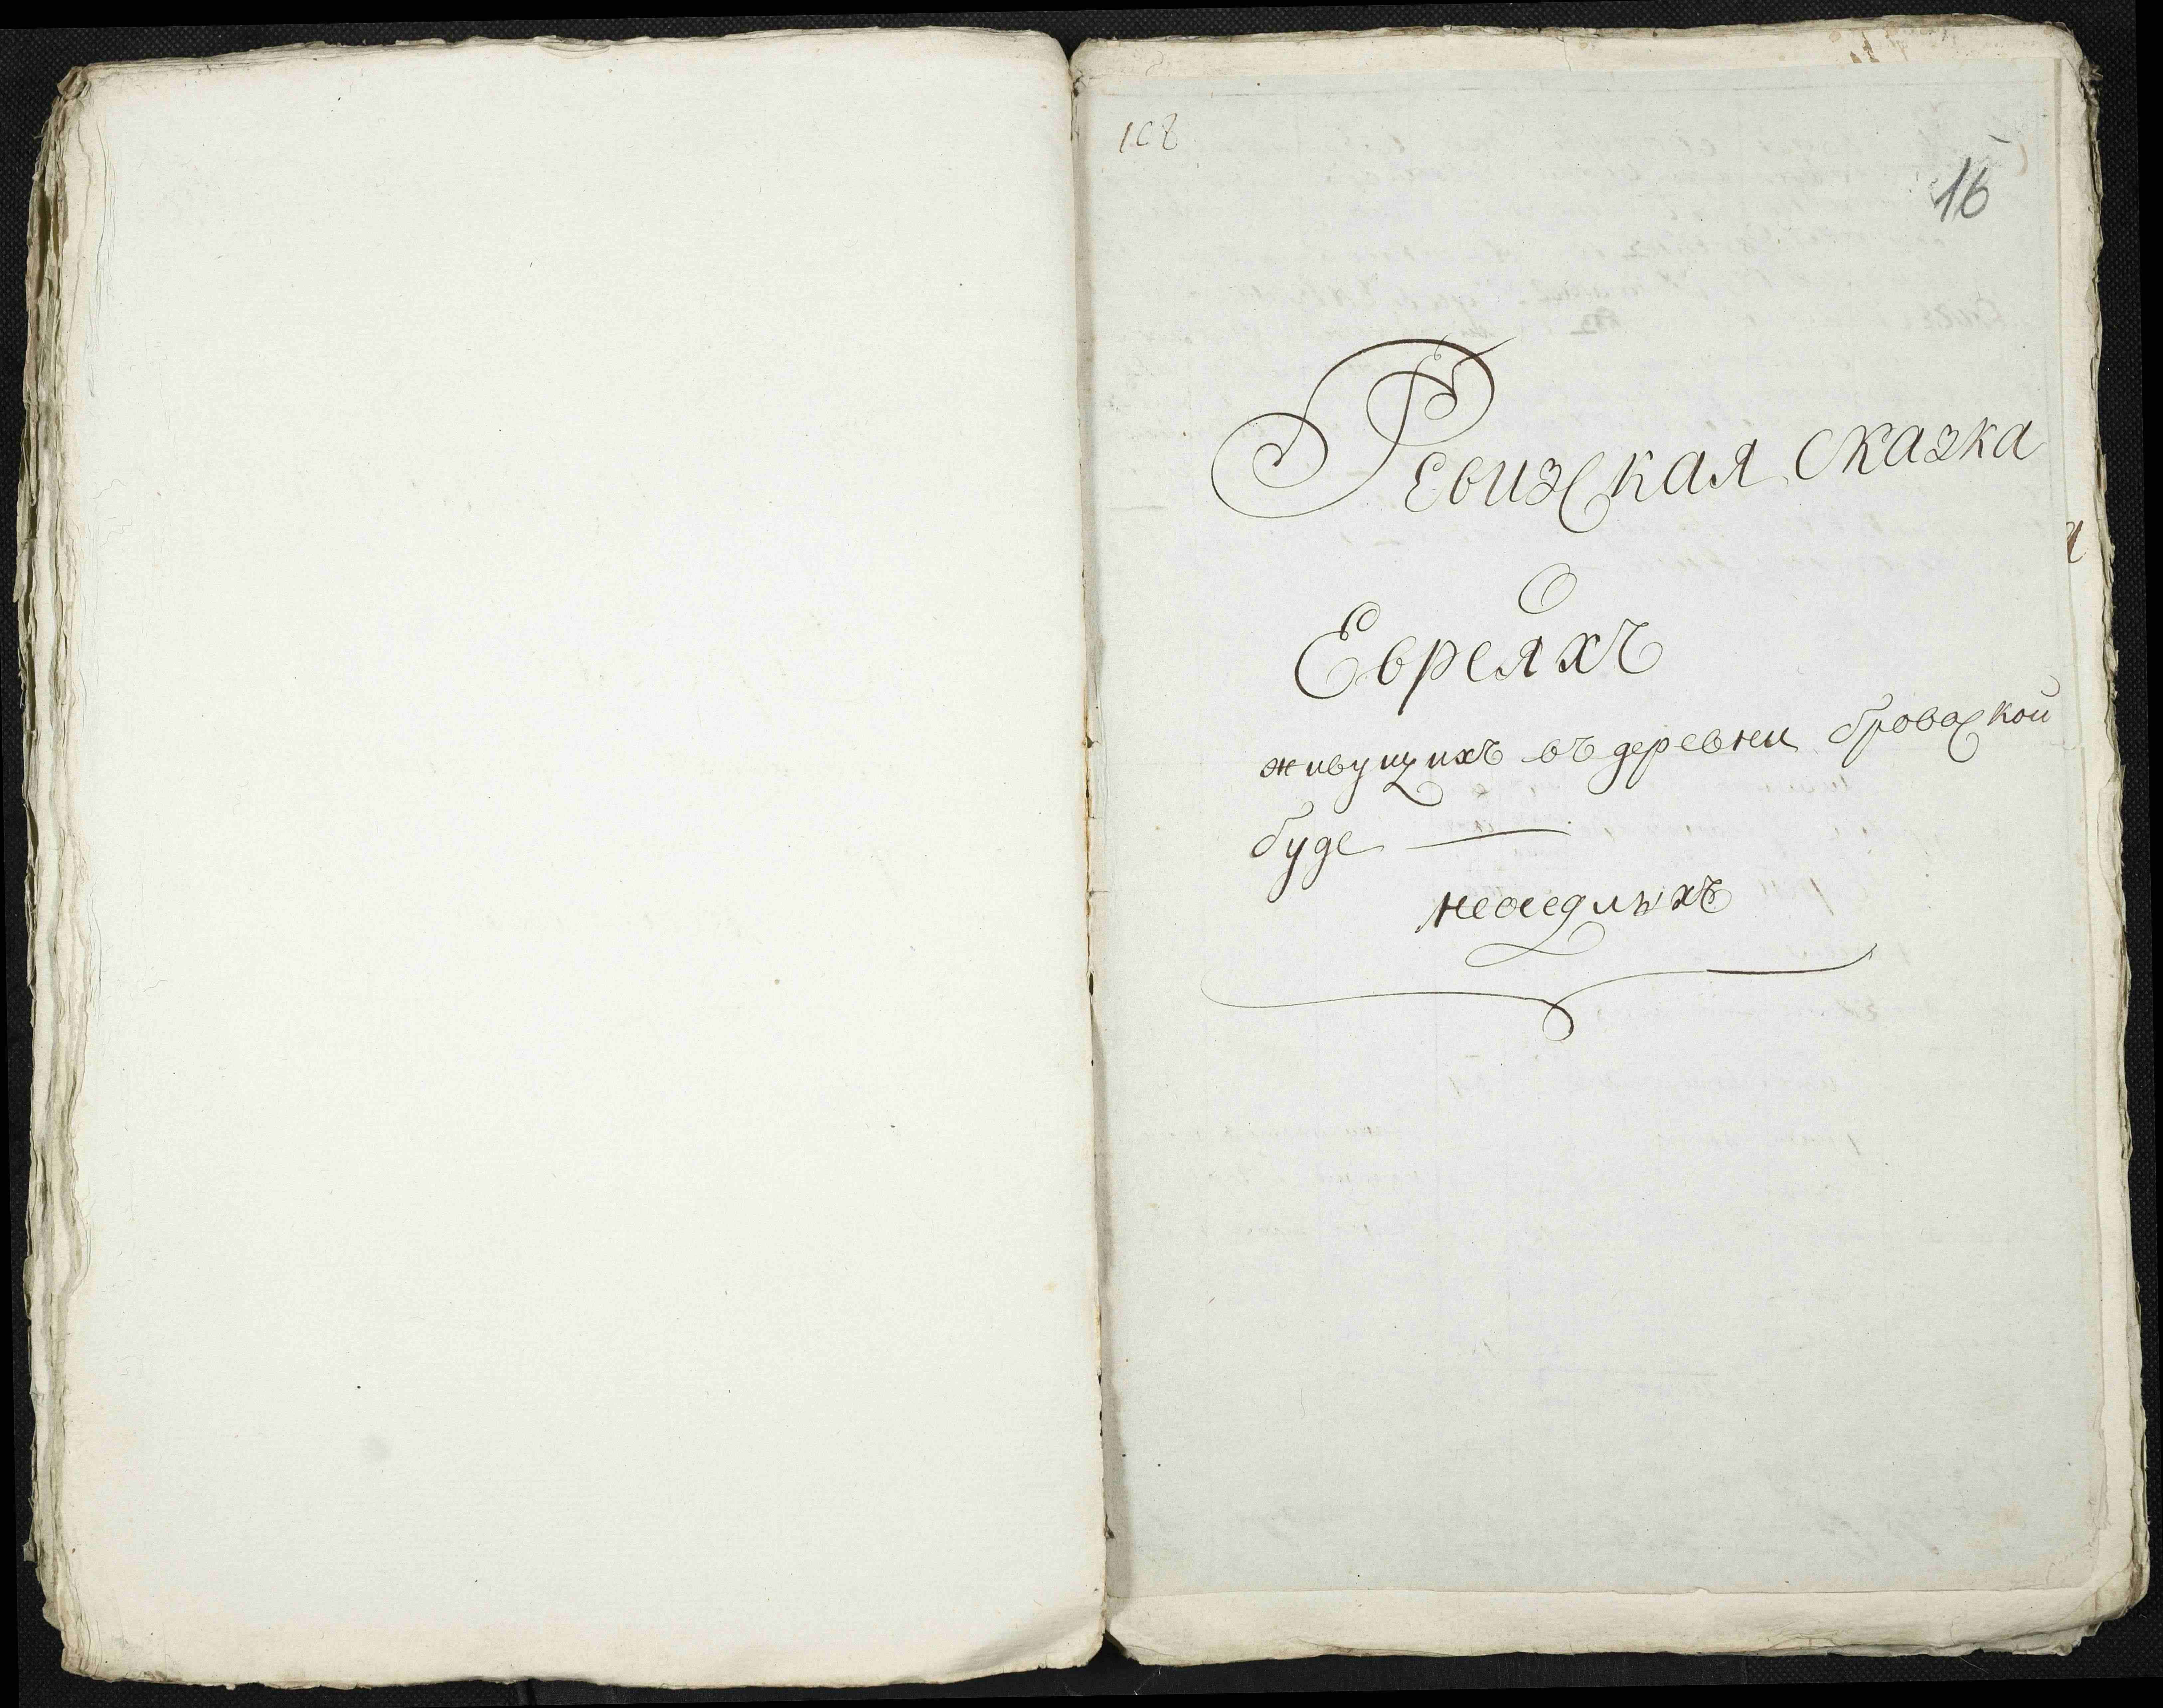 108
16
Ревизская сказка
О
Евреяхъ
живущихъ въ деревни бровас кой
буде —
неоседлыхъ